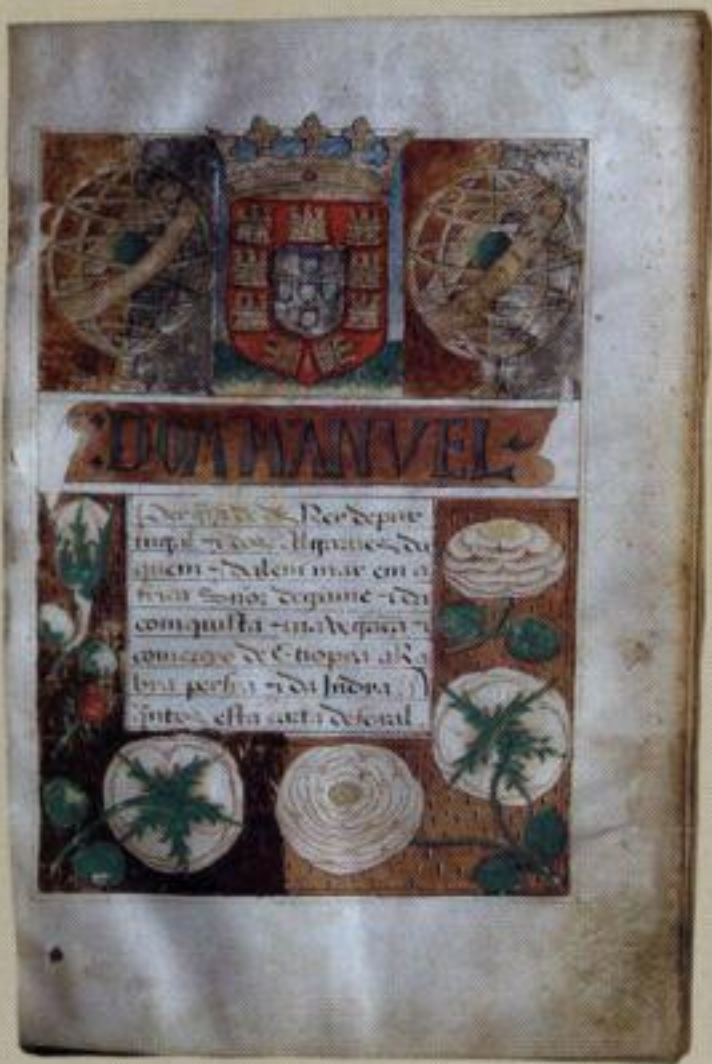 :DOM MANVEL
Per graça de Rey depor
tugal ⁊ dos Algarues da
quem ⁊ dalem mar em a
frica Snor deguine ⁊ da
comquista ⁊ nauegaçã ⁊
comercio de Etiopia aRa
bia persia ⁊ da India. A
esta carta deforal